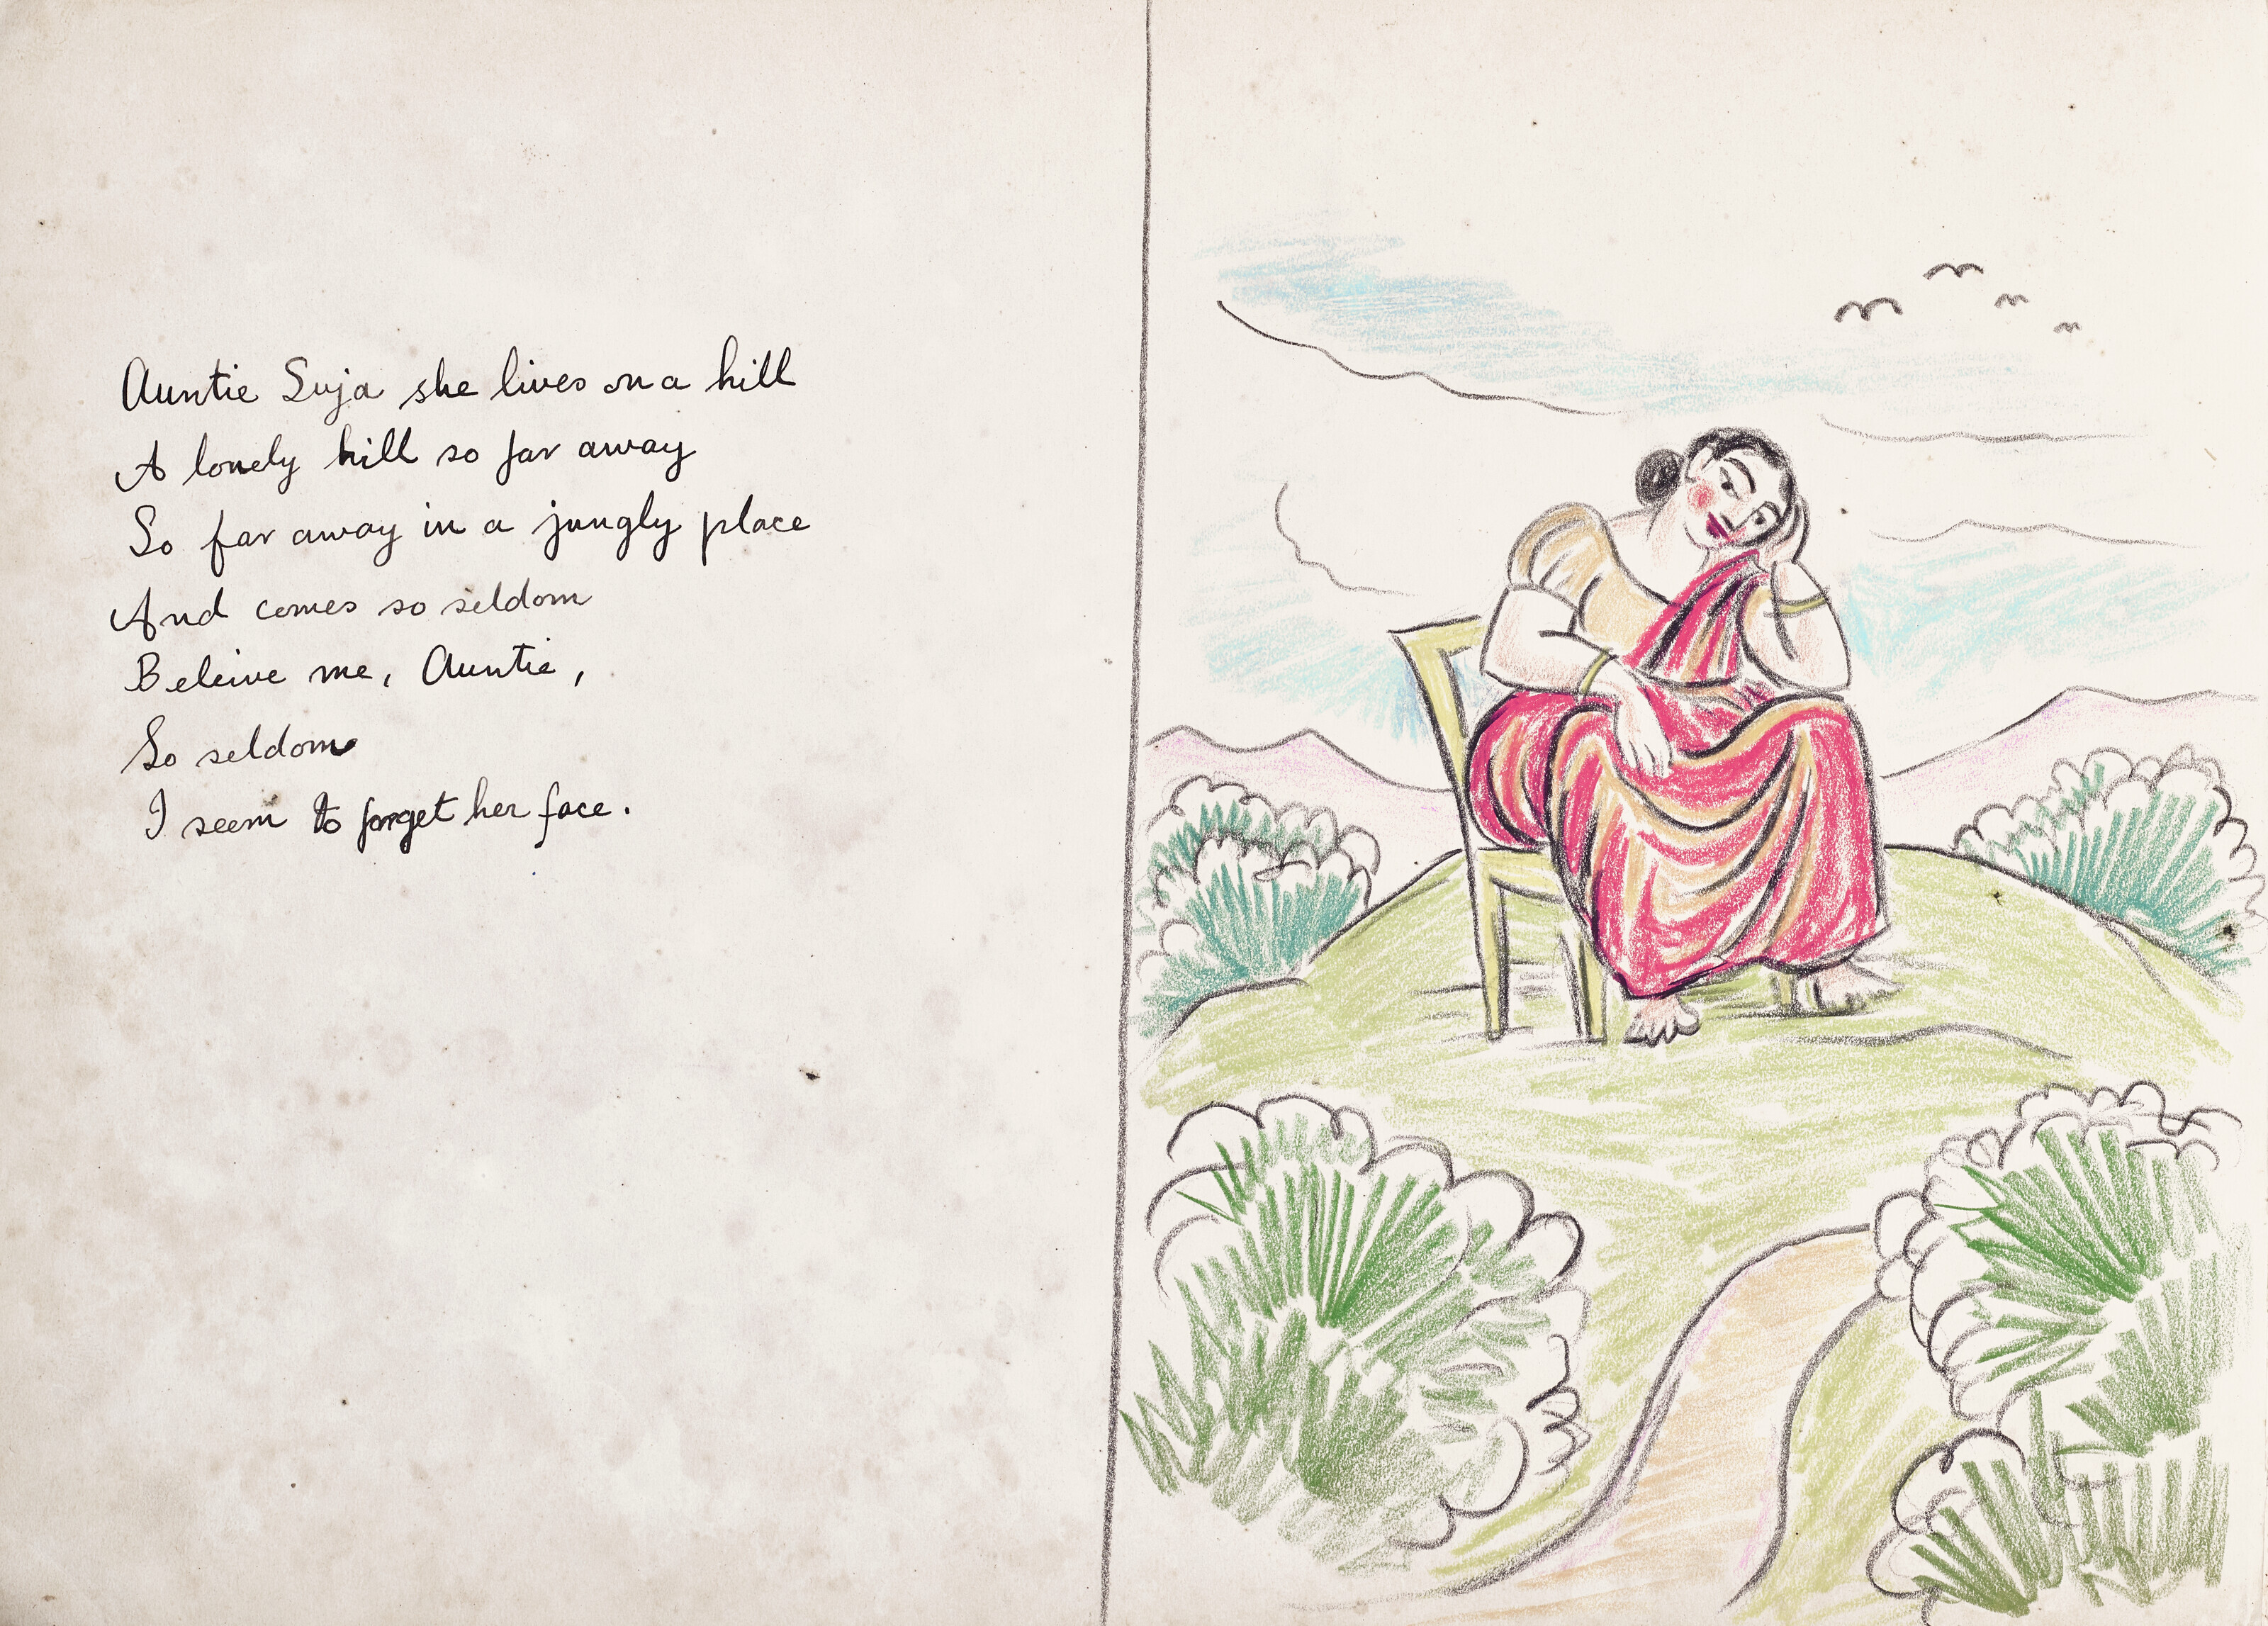 Auntie Suja she lives on a hill
A lonely hill so far away
So far away in a jungly place
And comes so seldom
Beleive me, Auntie,
So seldom
I seem to forget her face.